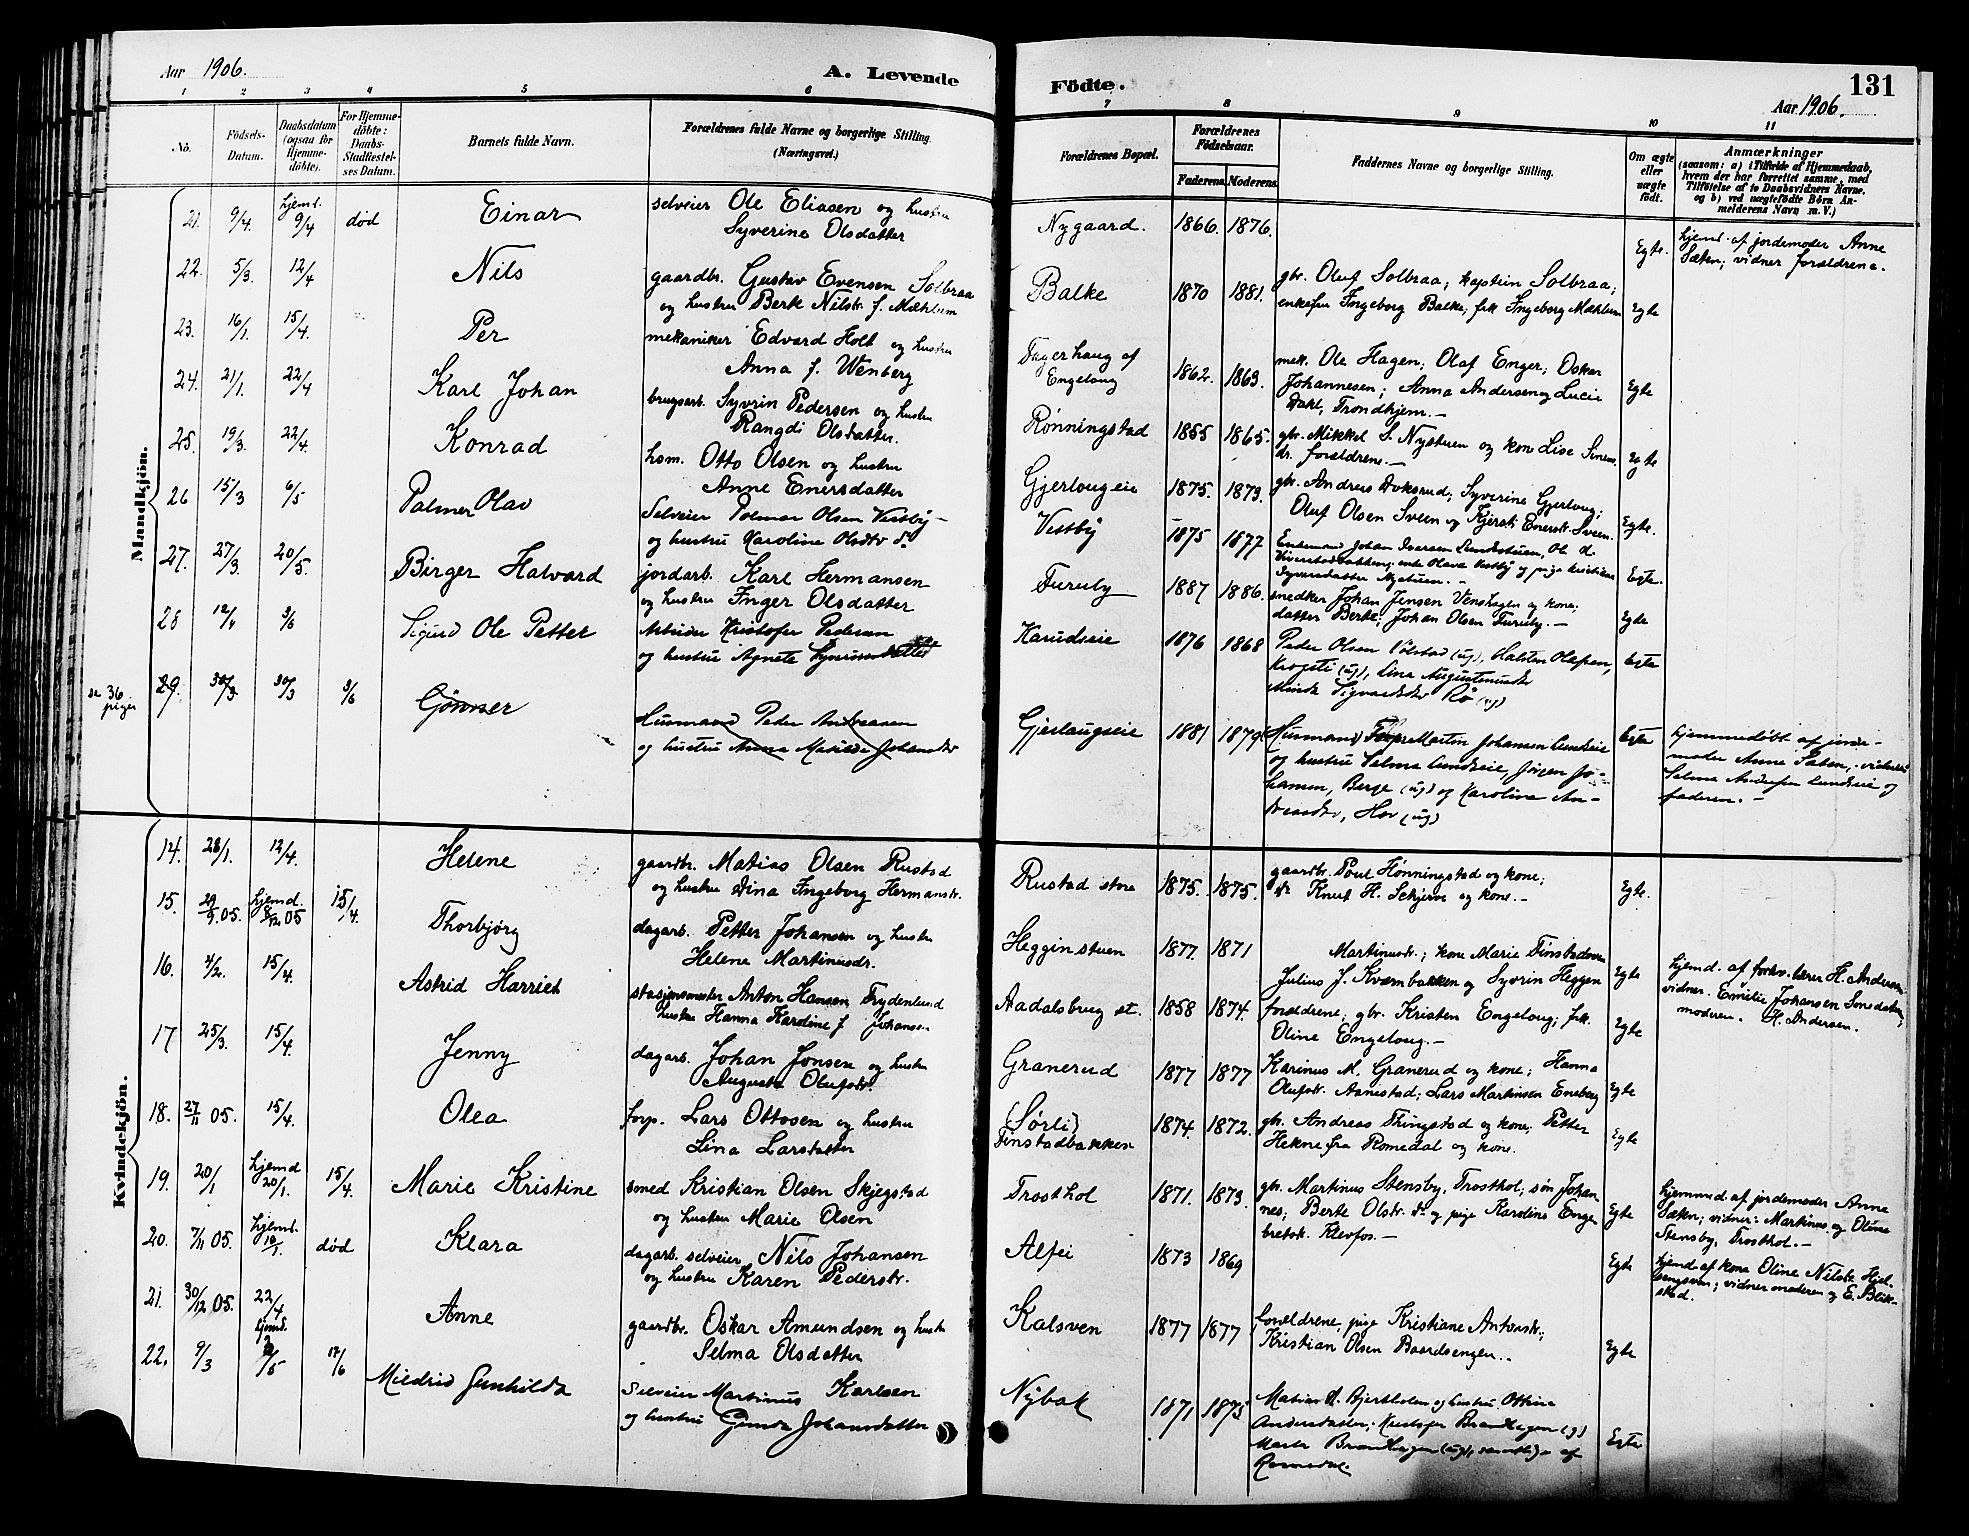 Aar 1906.
A. Levende
Födte.
131
Aar 1906.
1 2 3 4 5 6 7 8 9 10 11
No.
Födsels-Datum.
Daabsdatum (ogsaa för Hjemme-döbte).
For Hjemme-döbte: Daabs-Stadfæstel-ses Datum.
Barnets fulde Navn.
Forældrenes fulde Navne og borgerlige Stilling (Næringsvei.)
Forældrenes Bopæl.
Forældrenes Födselsaar.
Faderens Moderens
Faddernes Navne og borgerlige Stilling.
Om ægte eller uægte födt.
Anmærkninger
(saasom: a) i Tilfælde af Hjemmedaab, hvem der har forrettet samme, med Tilföielse af to Daabsvidners Navne, og b) ved uægtefödte Börn An-melderens Navn m. V.)
Mandkjön.
21. 9/4. hjemd. 9/4 død Einar
selveier Ole Eliasen og hustru
Syverine Olsdatter
Nygaard. 1866. 1876. Egte.
hjemd. af jordemoder Anne
Sæten; vidner forældrene.
22. 5/3. 12/4 Nils
gaardbr. Gustav Evensen Solbraa
og hustru Berte Nilsdr. f. Mæhlum
Balke 1870 1881.
gbr. Oluf Solbraa; kaptein Solbraa;
enkefru Ingeborg Balke; frk Ingeborg Mæhlum Egte
23. 16/1 15/4. Per
mekaniker Edvard Holt og hustru
Anna f. Wenberg
Fagerhaug af
Engeloug 1862. 1863.
mek. Ole Hagen; Olaf Enger; Oskar
Johannesen; Anna Andersen og Lucie
Dahl, Trondhjem.— Egte
24. 21/1. 22/4 Karl Johan
brugsarb. Syvrin Pedersen og hustru
Rangdi Olsdatter.
Rønningstad 1855 1865.
gbr. Mikkel S. Nystuen og kone Lise Simens
dr. forældrene.— Egte
25. 19/3. 22/4. Konrad
hsm. Otto Olsen og hustru
Anne Enersdatter
Gjerlougeie 1875. 1873.
gbr. Andreas Doksrud; Syverine Gjerloug;
Oluf Olsen Sveen og Kjersti Enersdr. Sveen Egte.
26 15/3 6/5 Palmer Olav
Selveier Polmar Olsen Vestby
og hustru Karoline Olsdtr
Vestby 1875 1877
Enkemand Johan Iversen Lundstuen, Ole
enke Olava Vestby og pige Kristiane
Syversdatter Nystuen.— Egte.
27. 27/3. 20/5. Birger Halvard
jordarb. Karl Hermansen
og hustru Inger Olsdatter
Furuby 1887 1886.
snedker Johan Jensen Venshagen og kone;
datter Berte; Johan Olsen Furuby.— Egte
28 12/4 3/6 Sigurd Ole Petter
Arbeider Kristofer Pedersen
og hustru Agnete
Karudseie 1876 1868
Peder Olsen Volstad (ug), Halsten Olafsen,
(ug), Lina Augustinusdr
Sigvardsdtr Rø (ug) Egte
se 36 piger
29. 30/3. 30/3 3/6 Gønner
Husmand Peder Andreasen
og hustru Anna Matilde Johansdtr
Gjerlaugseie 1881 1879
Husmand Martin Johansen Lundseie
og hustru Selma Lundseie, Jørgen Jo-
hansen, Berge (ug) og Karoline An-
dreasdtr, Hov (ug) Egte
hjemmedöbt af jorde-
moder Anne Sæten, vidner
Selma Andersen Lundseie og
faderen.—
Kvindekjön.
14. 28/1. 12/4. Helene
gaardbr. Matias Olsen Rustad
og hustru Dina Ingeborg Hermansdr.
Rustad store 1875. 1875.
gaardbr. Poul Hønningstad og kone;
do Knut H. Schjerve og kone.— Egte.
15. 29/9.05. hjemd. 8/12 05 15/4. Thorbjørg
dagarb. Petter Johansen og hustru
Helene Martinusdr.
Hegginstuen 1877. 1871
Martinusdr.; kone Marie Finstadmoen
Julius J. Kværnbakken og Syvrin Heggen Egte
hjemd. af forhv. lærer H. Andersen
vidner: Emilie Johansen Smedstuen,
moderen. H. Andersen.
16. 4/2. 15/4. Astrid Harriet
stasjonsmester Anton Hansen Frydenlund
hustru Hanna Karoline f. Johansen
Aadalsbrug st. 1858 1874.
forældrene; gbr. Kristen Engeloug; frk.
Oline Engeloug.— Egte
17 25/3. 15/4. Jenny
dagarb. Johan Jonsen og hustru
Augusta Olufsdr.
Granerud 1877 1877
Karinus M. Granerud og kone; Hanna
Olufsdr. Aanestad; Lars Martinsen Eneberg Egte
18. 27/11 05. 15/4. Olea
forp. Lars Ottosen og hustru
Lina Larsdatter
(Sørli)
Finstadbakken 1874. 1872.
gbr. Andreas Tringstad og kone; Petter
Hekne fra Romedal og kone. Egte
19. 20/1 hjemd 20/1. 15/4. Marie Kristine
smed Kristian Olsen Skjegstad
og hustru Marie Olsen
Trosthol 1871. 1873.
gbr. Martinus Stensby, Trosthol; søn Johan
nes; Berte Olsdr. do og pige Karoline Enge
bretsdr. Klevfos.— Egte
hjemmd. af jordemoder Anne
Sæten; vidner: Martinus og Oline
Stensby, Trosthol.—
20. 7/11 05. hjemd. 10/1. død Klara
dagarb. selveier Nils Johansen
og hustru Karen Pedersdr.
Alfei 1873 1869 Egte
hjemd. af kone Oline Nilsdr. Hjel-
sengsven; vidner moderen og E. Blik-
stad.
21. 30/12 05. 22/4 Anne
gaardbr. Oskar Amundsen og hustru
Selma Olsdatter
Kalsven 1877 1877
forældrene, pige Kristiane Antonsdr.;
Kristian Olsen Baardsengen.. Egte
22. 9/3 hjemd. 2/5 17/6 Mildrid Gunhilda
Selveier Martinus Karlsen
og hustru Gunda Johansdatter
Nybak 1871 1875
Matias A. Bjertholen og hustru Ottine
Andersdatter, Kristofer Brandhagen (g)
Marte Brandhagen (ug), samtlige af
Romedal. Egte